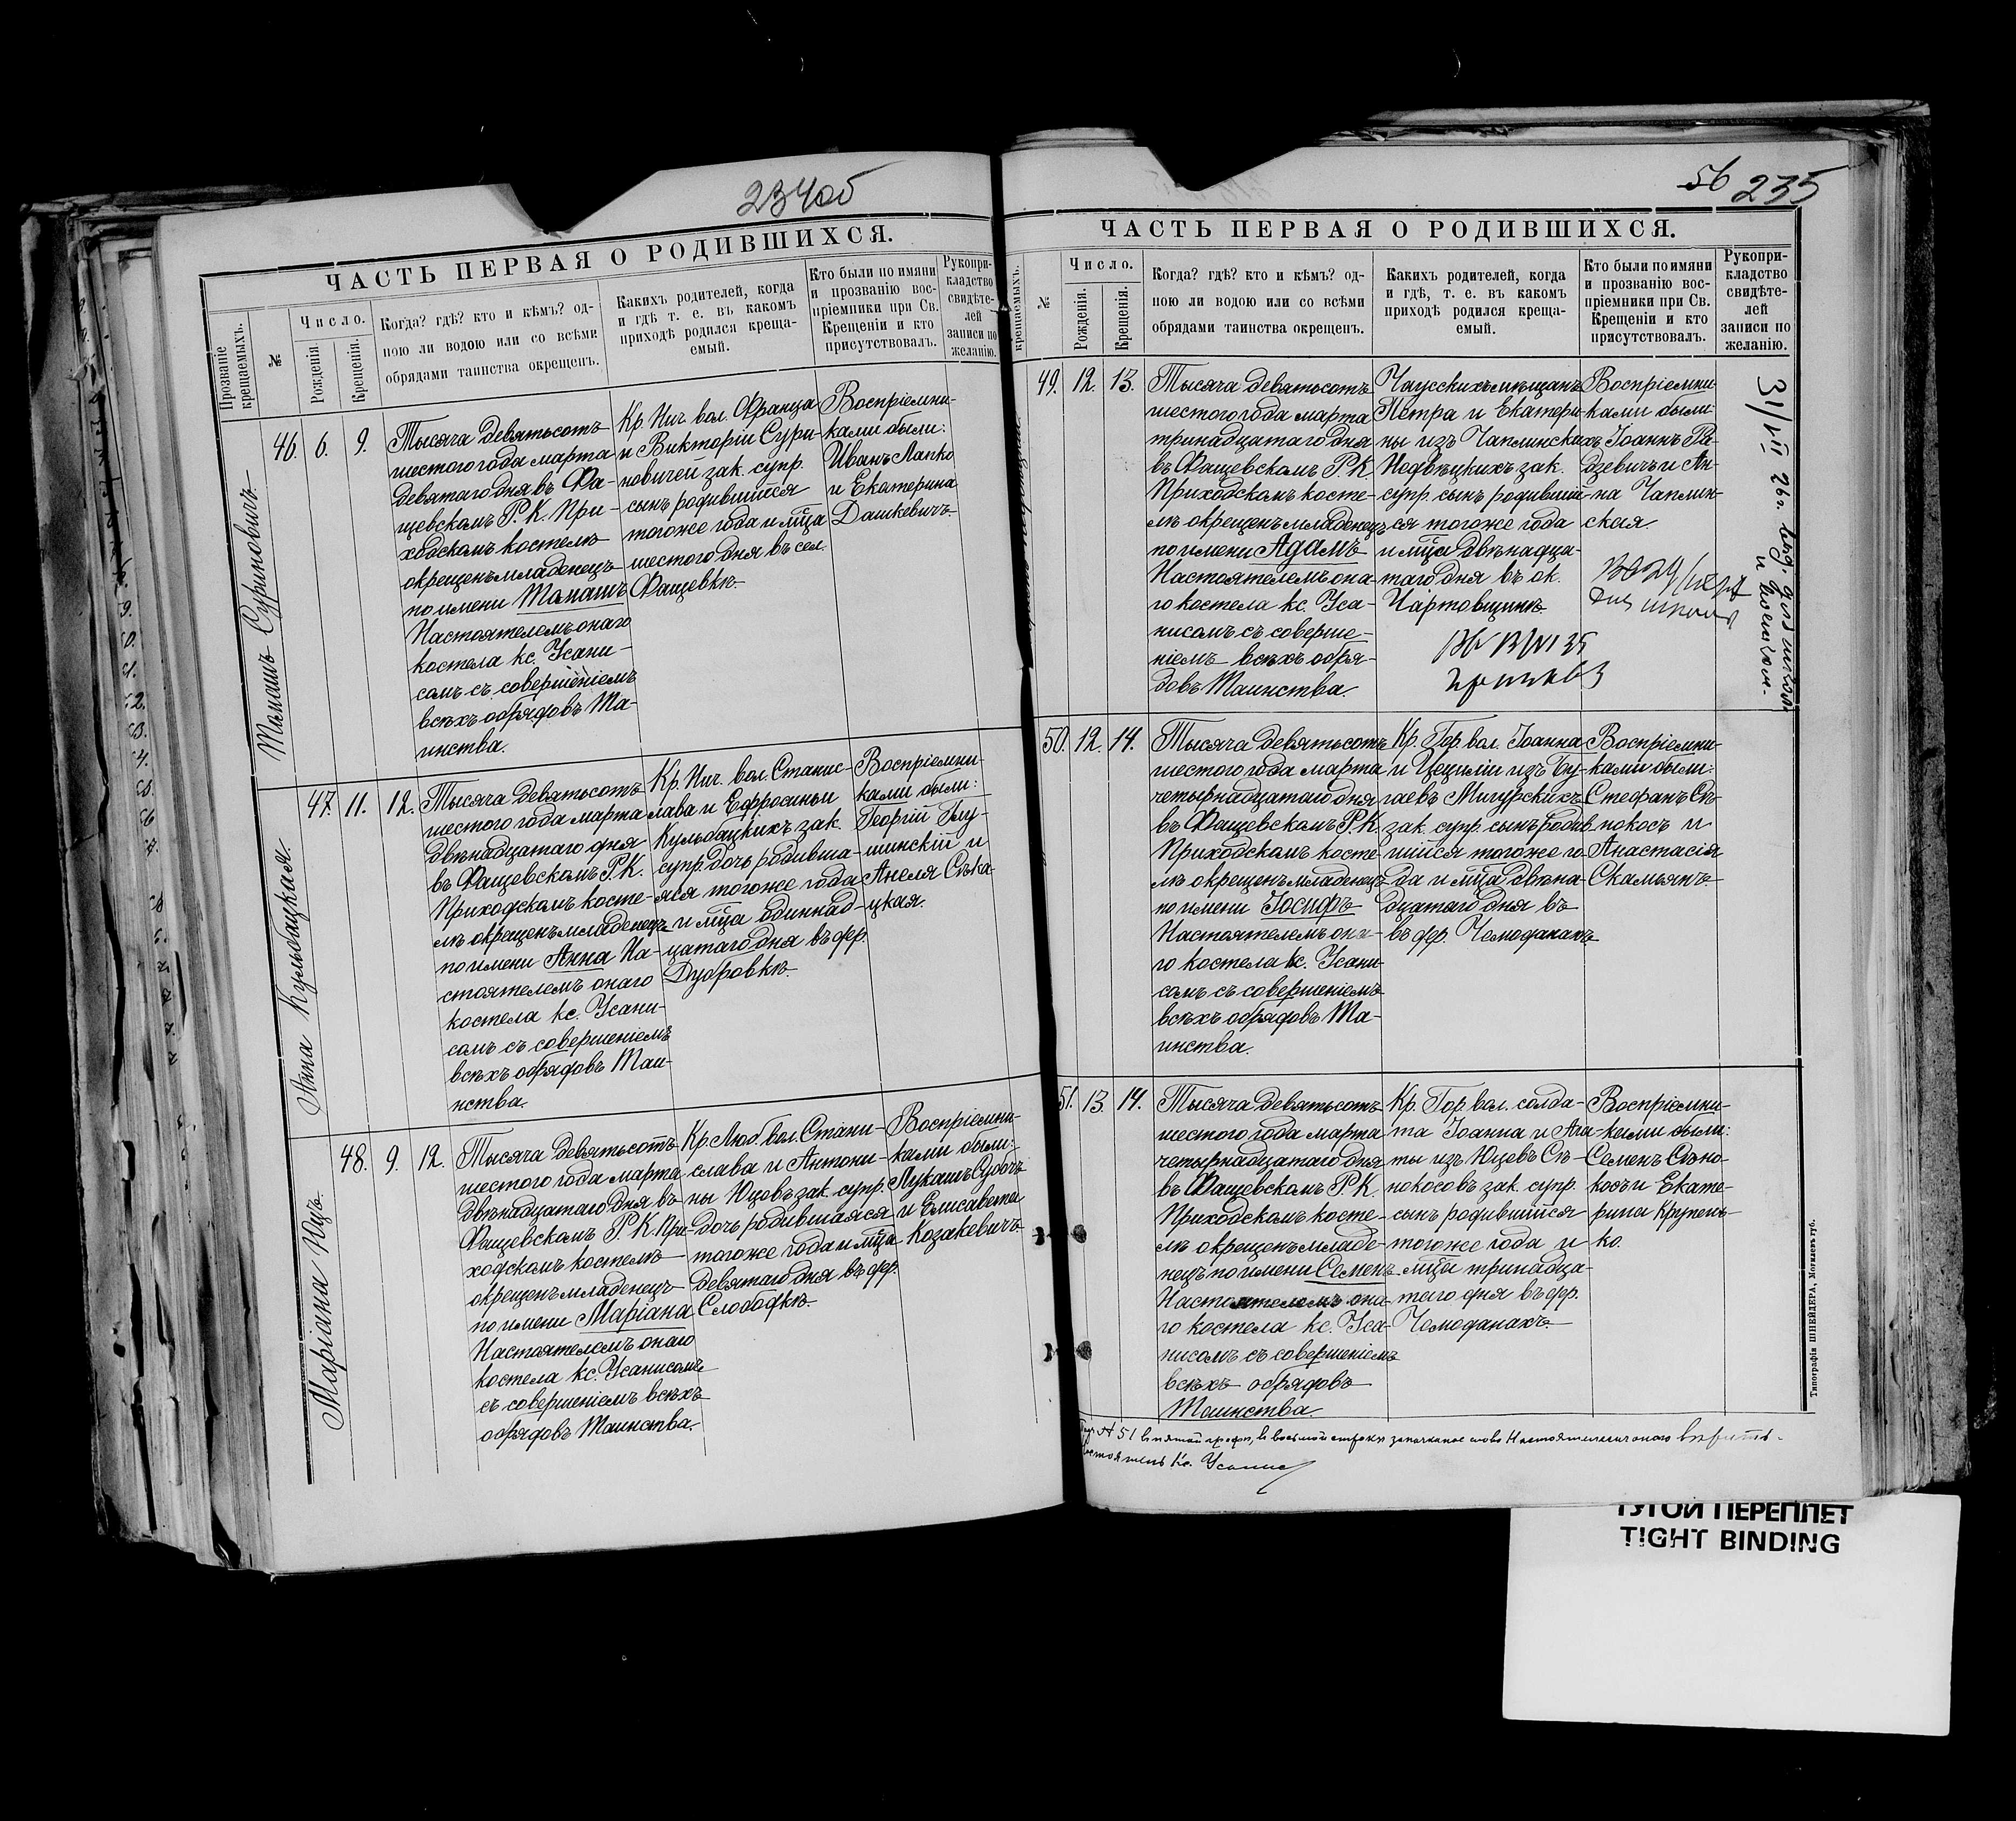 234об
ЧАСТЬ ПЕРВАЯ О РОДИВШИХСЯ.
Прозваніе крещаемыхъ.
№
Число.
Рожденія.
Крещенія.
Когда? гдѣ? кто и кѣмъ? од-
ною ли водою или со всѣми
обрядами таинства окрещенъ.
Какихъ родителей, когда
и гдѣ т. е. въ какомъ
приходѣ родился креща-
емый.
Кто были по имяни
и прозванію вос-
пріемники при Св.
Крещеніи и кто
присутствовалъ.
Рукопри-
кладство
свидѣте-
лей
записи по
желанію.
Томашъ Суриновичъ.
46. 6. 9.
Тысяча девятьсотъ
шестого года марта
девятаго дня въ Фа-
щевскомъ Р. К. При-
ходскомъ костелѣ
окрещенъ младенецъ
по имени Томашъ
Настоятелемъ онаго
костела кс. Усани-
сомъ съ совершеніемъ
всѣхъ обрядовъ Та-
инства.
Кр. Нич. вол. Франца
и Викторіи Сури-
новичей зак. супр.
сынъ родившійся
тогоже года и мѣца
шестого дня въ сел.
Фащевкѣ.
Воспріемни-
ками были:
Иванъ Лапко
и Екатерина
Дашкевичъ.
Анна Кульбацкая.
47. 11. 12.
Тысяча девятьсотъ
шестого года марта
двѣнадцатаго дня
въ Фащевскомъ Р. К.
Приходскомъ косте-
лѣ окрещенъ младенецъ
по имени Анна На-
стоятелемъ онаго
костела кс. Усани-
сомъ съ совершеніемъ
всѣхъ обрядовъ Таи-
нства.
Кр. Нич. вол. Станис-
лава и Ефросиньи
Кульбацкихъ зак.
супр. дочь родивша-
яся тогоже года
и мѣца одиннад-
цатаго дня въ фер.
Дубровкѣ.
Воспріемни-
ками были:
Георгій Глу-
шинскій и
Анеля Сѣка-
цкая.
Маріана Юцъ.
48. 9. 12.
Тысяча девятьсотъ
шестого года марта
двѣнадцатаго дня въ
Фащевскомъ Р. К. При-
ходскомъ костелѣ
окрещенъ младенецъ
по имени Маріана
Настоятелемъ онаго
костела кс. Усанисомъ
съ совершеніемъ всѣхъ
обрядовъ Таинства.
Кр. Люб. вол. Стани-
слава и Антони-
ны Юцовъ зак. супр.
дочь родившаяся
тогоже года и мѣца
девятаго дня въ фер.
Слободкѣ.
Воспріемни-
ками были:
Лукашъ Суботъ
и Елисавета
Козакевичъ.
56 235
ЧАСТЬ ПЕРВАЯ О РОДИВШИХСЯ.
крещаемыхъ.
№
Число.
Рожденія.
Крещенія.
Когда? гдѣ? кто и кѣмъ? од-
ною ли водою или со всѣми
обрядами таинства окрещенъ.
Какихъ родителей, когда
и гдѣ, т. е. въ какомъ
приходѣ родился креща-
емый.
Кто были по имяни
и прозванію вос-
пріемники при Св.
Крещеніи и кто
присутствовалъ.
Рукопри-
кладство
свидѣте-
лей
записи по
желанію.
49. 12. 13.
Тысяча девятьсотъ
шестого года марта
тринадцатаго дня
въ Фащевскомъ Р. К.
Приходскомъ косте-
лѣ окрещенъ младенецъ
по имени Адамъ
Настоятелемъ она-
го костела кс. Уса-
нисомъ съ соверше-
ніемъ всѣхъ обря-
довъ Таинства.
Чаусскихъ мѣщанъ
Петра и Екатери-
ны изъ Чаплинскихъ
Недвѣцкихъ зак.
супр. сынъ родившій-
ся тогоже года
и мѣца двѣнадца-
таго дня въ ок.
Чартовщинѣ.
Воспріемни-
ками были
Іоаннъ Ра-
дзевичъ и Ан-
на Чаплин-
ская.
50. 12. 14.
Тысяча девятьсотъ
шестого года марта
четырнадцатаго дня
въ Фащевскомъ Р. К.
Приходскомъ косте-
лѣ окрещенъ младенецъ
по имени Іосифъ
Настоятелемъ она-
го костела кс. Усани-
сомъ съ совершеніемъ
всѣхъ обрядовъ Та-
инства.
Кр. Гор. вол. Іоанна
и Цециліи изъ Бу-
гаевъ Мигурскихъ
зак. супр. сынъ родив
шійся тогоже го-
да и мѣца двѣна-
дцатаго дня въ
въ фер. Чемоданахъ
Воспріемни-
ками были:
Стефанъ Сѣ-
нокосъ и
Анастасія
Скамьянъ.
51. 13. 14.
Тысяча девятьсотъ
шестого года марта
четырнадцатаго дня
въ Фащевскомъ Р. К.
Приходскомъ косте-
лѣ окрещенъ младе-
нецъ по имени Семенъ
Настоятелемъ она-
го костела кс. Уса-
нисомъ съ совершеніемъ
всѣхъ обрядовъ
Таинства.
Кр. Гор. вол. солда-
та Іоанна и Ага-
ты изъ Юцевъ Сѣ-
нокосовъ зак. супр.
сынъ родившійся
тогоже года и
мѣца тринадца-
таго дня въ фер.
Чемоданахъ.
Воспріемни-
ками были:
Семенъ Сѣно-
косъ и Екате-
рина Крупень-
ко.
№ 51 в пятой графѣ, в восьмой строкѣ слово Настоятелемъ онаго вѣрить.
Кс. Усанис
Типографія ШНЕЙДЕРА, Могилевъ губ.
ТУГОЙ ПЕРЕПЛЕТ
TIGHT BINDING